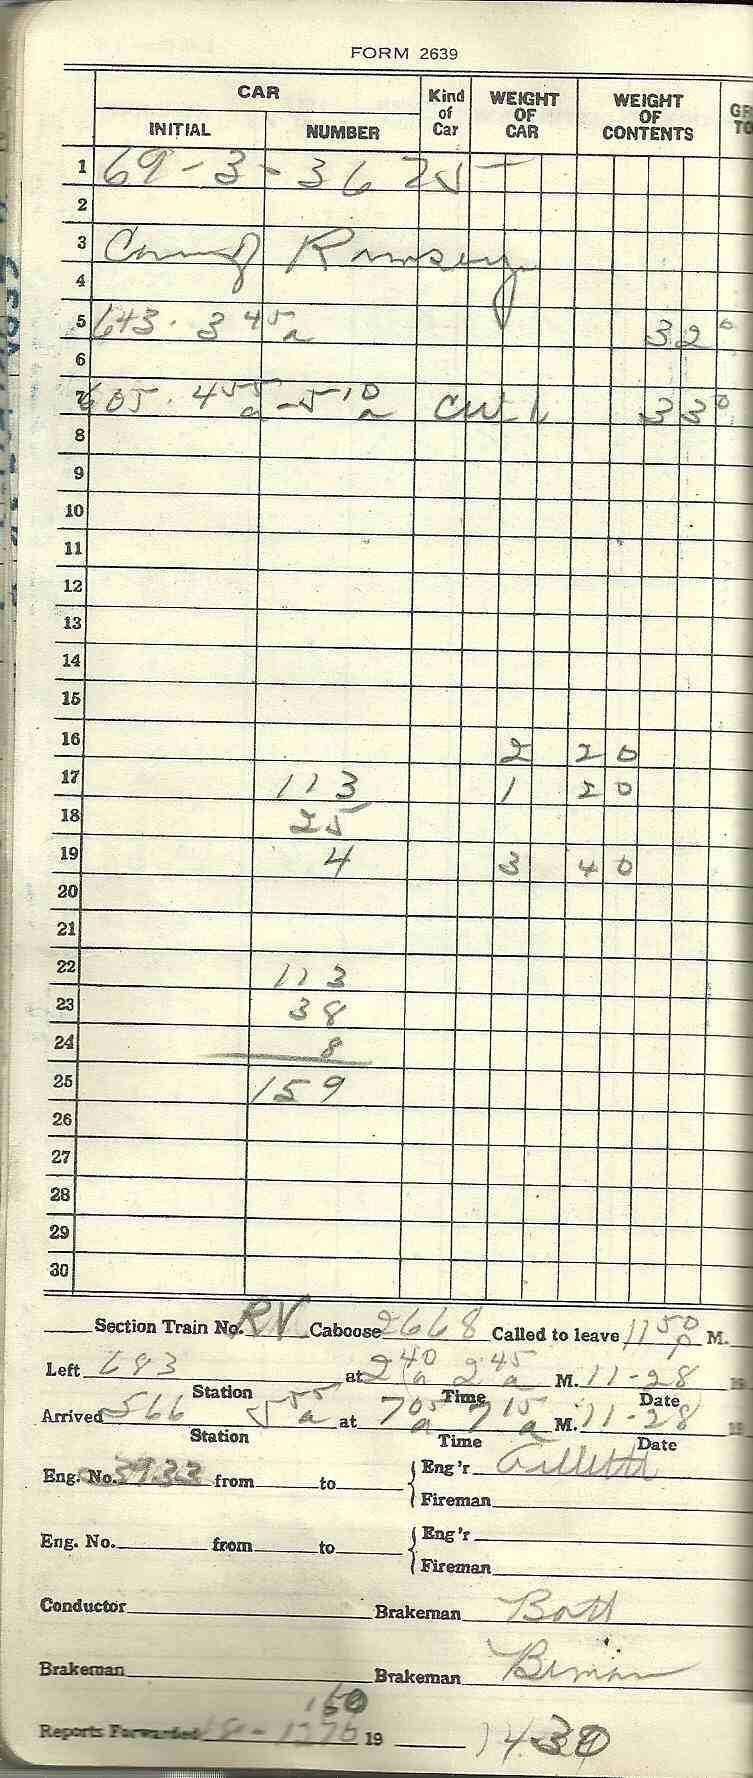 FORM 2639
CAR Kind of Car WEIGHT OF CAR WEIGHT OF CONTENTS
INITIAL NUMBER
1 69-3-36 25
2
3 Ramsey
4
5 643. 3 45 a 32 0
6
7 605. 4 55 a - 5 10 a CW 1 33 0
8
9
10
11
12
13
14
15
16 2 20
17 113 1 20
18 25
19 4 3 40
20
21
22 113
23 38
24 8
25 159
26
27
28
29
30
Section Train No. RV Caboose 2668 Called to leave 11 50 p M.
Left 683 at 2 40 a 2 45 a M. 11-28 19
Station Time Date
Arrived 566 5 55 a at 7 05 a 7 15 a M. 11-28 19
Station Time Date
Eng. No. 3933 from to Eng'r Gillett
Fireman
Eng. No. from to Eng'r
Fireman
Conductor Brakeman Bott
Brakeman Brakeman Beman
150
Reports Forwarded 18-1276 19 1430